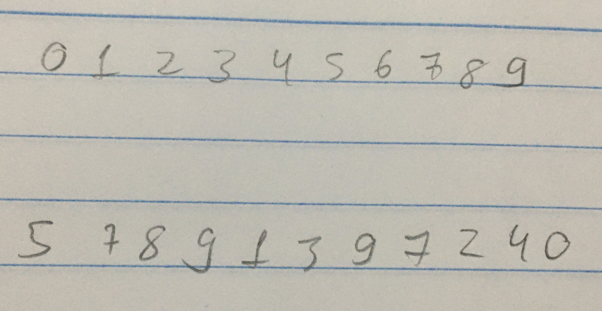 0 1 2 3 4 5 6 7 8 9
5 7 8 9 1 3 9 7 2 4 0